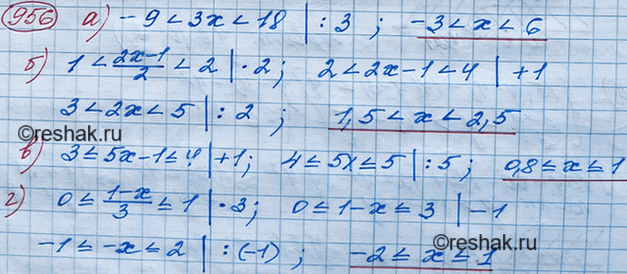 956 а) -9 < 3x < 18 | : 3 ; -3 < x < 6
б) 1 < (2x-1)/2 < 2 | · 2; 2 < 2x-1 < 4 | +1
3 < 2x < 5 | : 2 ; 1,5 < x < 2,5
©reshak.ru ©reshak.ru
в) 3 ≤ 5x-1 ≤ 4 | +1; 4 ≤ 5x ≤ 5 | : 5; 0,8 ≤ x ≤ 1
г) 0 ≤ (1-x)/3 ≤ 1 | · 3; 0 ≤ 1-x ≤ 3 | -1
-1 ≤ -x ≤ 2 | : (-1) ; -2 ≤ x ≤ 1
©reshak.ru ©reshak.ru